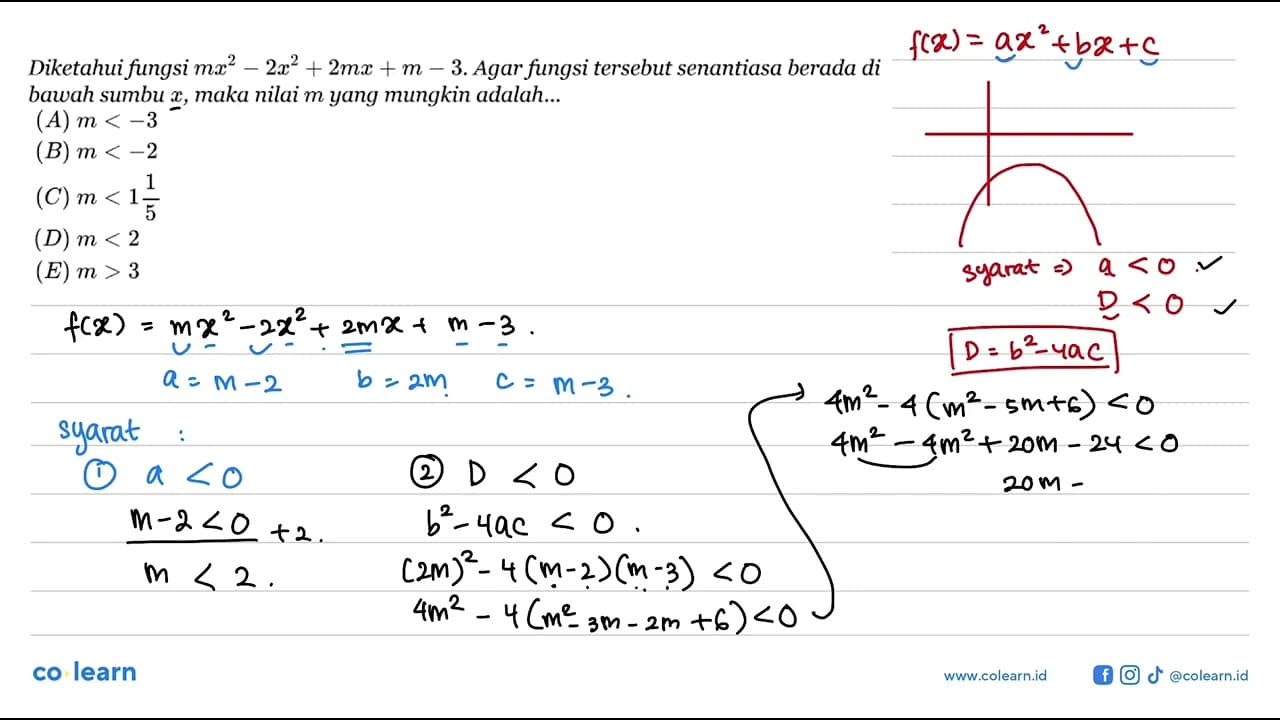 Diketahui fungsi mx² − 2x² + 2mx + m − 3. Agar fungsi tersebut senantiasa berada di
bawah sumbu x, maka nilai m yang mungkin adalah...
(A) m < −3
(B) m < −2
(C) m < 1 1/5
(D) m < 2
(E) m > 3
f(x) = ax² + bx + c
syarat ⇒ a < 0 ✓
D < 0 ✓
D = b² − 4ac
f(x) = mx² − 2x² + 2mx + m − 3 .
a = m − 2 b = 2m c = m − 3 .
syarat :
① a < 0
m − 2 < 0 +2.
m < 2 .
② D < 0
b² − 4ac < 0 .
(2m)² − 4(m−2)(m−3) < 0
4m² − 4(m² − 3m − 2m + 6) < 0
4m² − 4(m² − 5m + 6) < 0
4m² − 4m² + 20m − 24 < 0
20m −
co learn
www.colearn.id
@colearn.id